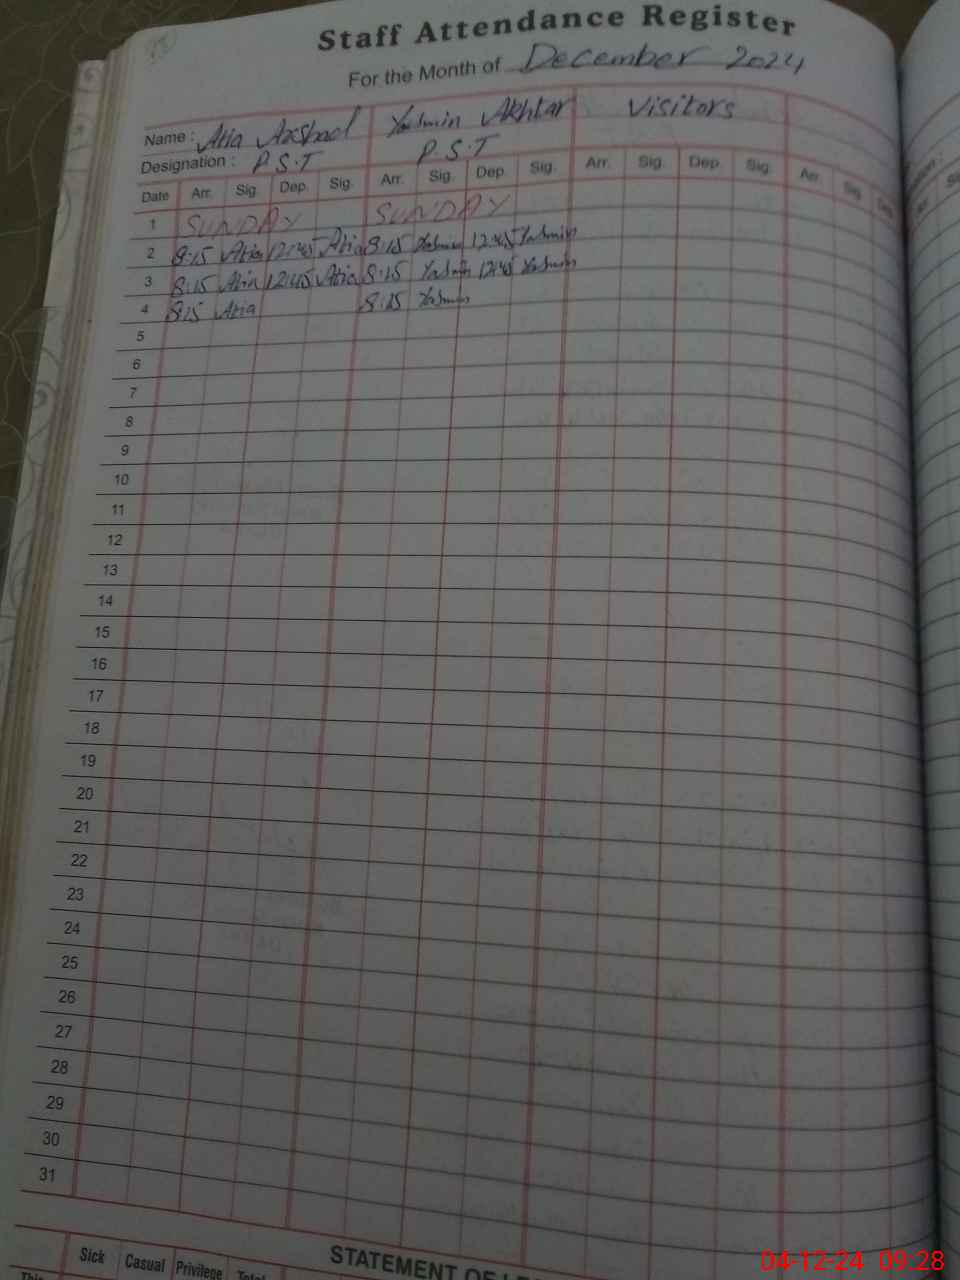 Staff Attendance Register
For the Month of December 2024
Name : Atia Arshad Yasmin Akhtar Visitors
Designation : P.S.T P.S.T
Date Arr. Sig. Dep. Sig. Arr. Sig. Dep. Sig. Arr. Sig. Dep. Sig. Arr. Sig. Dep.
1 SUNDAY SUNDAY
2 8:15 Atia 12:45 Atia 8:15 Yasmin 12:45 Yasmin
3 8:15 Atia 12:45 Atia 8:15 Yasmin 12:45 Yasmin
4 8:15 Atia 8:15 Yasmin
5
6
7
8
9
10
11
12
13
14
15
16
17
18
19
20
21
22
23
24
25
26
27
28
29
30
31
STATEMENT OF
Sick Casual Privilege Total
This
04-12-24 09:28